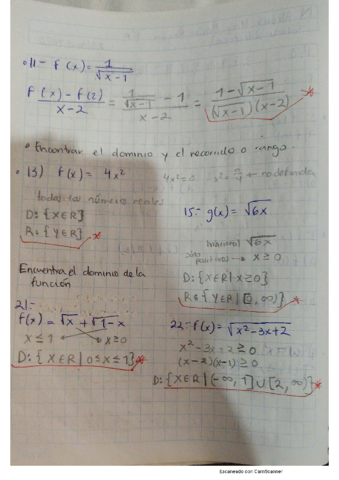 11.- f(x) = 1/√(x-1)
(f(x) - f(2))/(x-2) = (1/√(x-1) - 1)/(x-2) = (1-√(x-1))/((√(x-1))(x-2))
• Encontrar el dominio y el recorrido o rango.
13) f(x) = 4x²
4x²=0
← no definida
todos los números reales
D: {x∈R}
R: {y∈R}
15.- g(x) = √6x
√6x
solo positivos → x≥0
D: {x∈R|x≥0}
R: {y∈R|[0,∞)}
Encuentra el dominio de la
función
21.-
f(x) = √x + √1-x
x≤1 x≥0
D: {x∈R|0≤x≤1}
22.- f(x) = √(x²-3x+2)
x²-3x+2≥0
(x-2)(x-1)≥0
D: {x∈R|(-∞,1]∪[2,∞)}
Escaneado con CamScanner